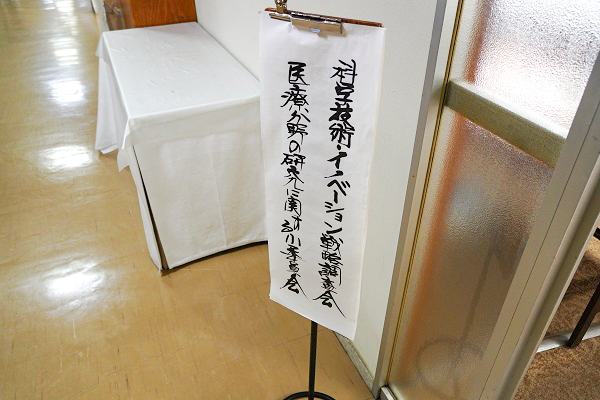 科学技術・イノベーション戦略調査会
医療分野の研究に関する小委員会